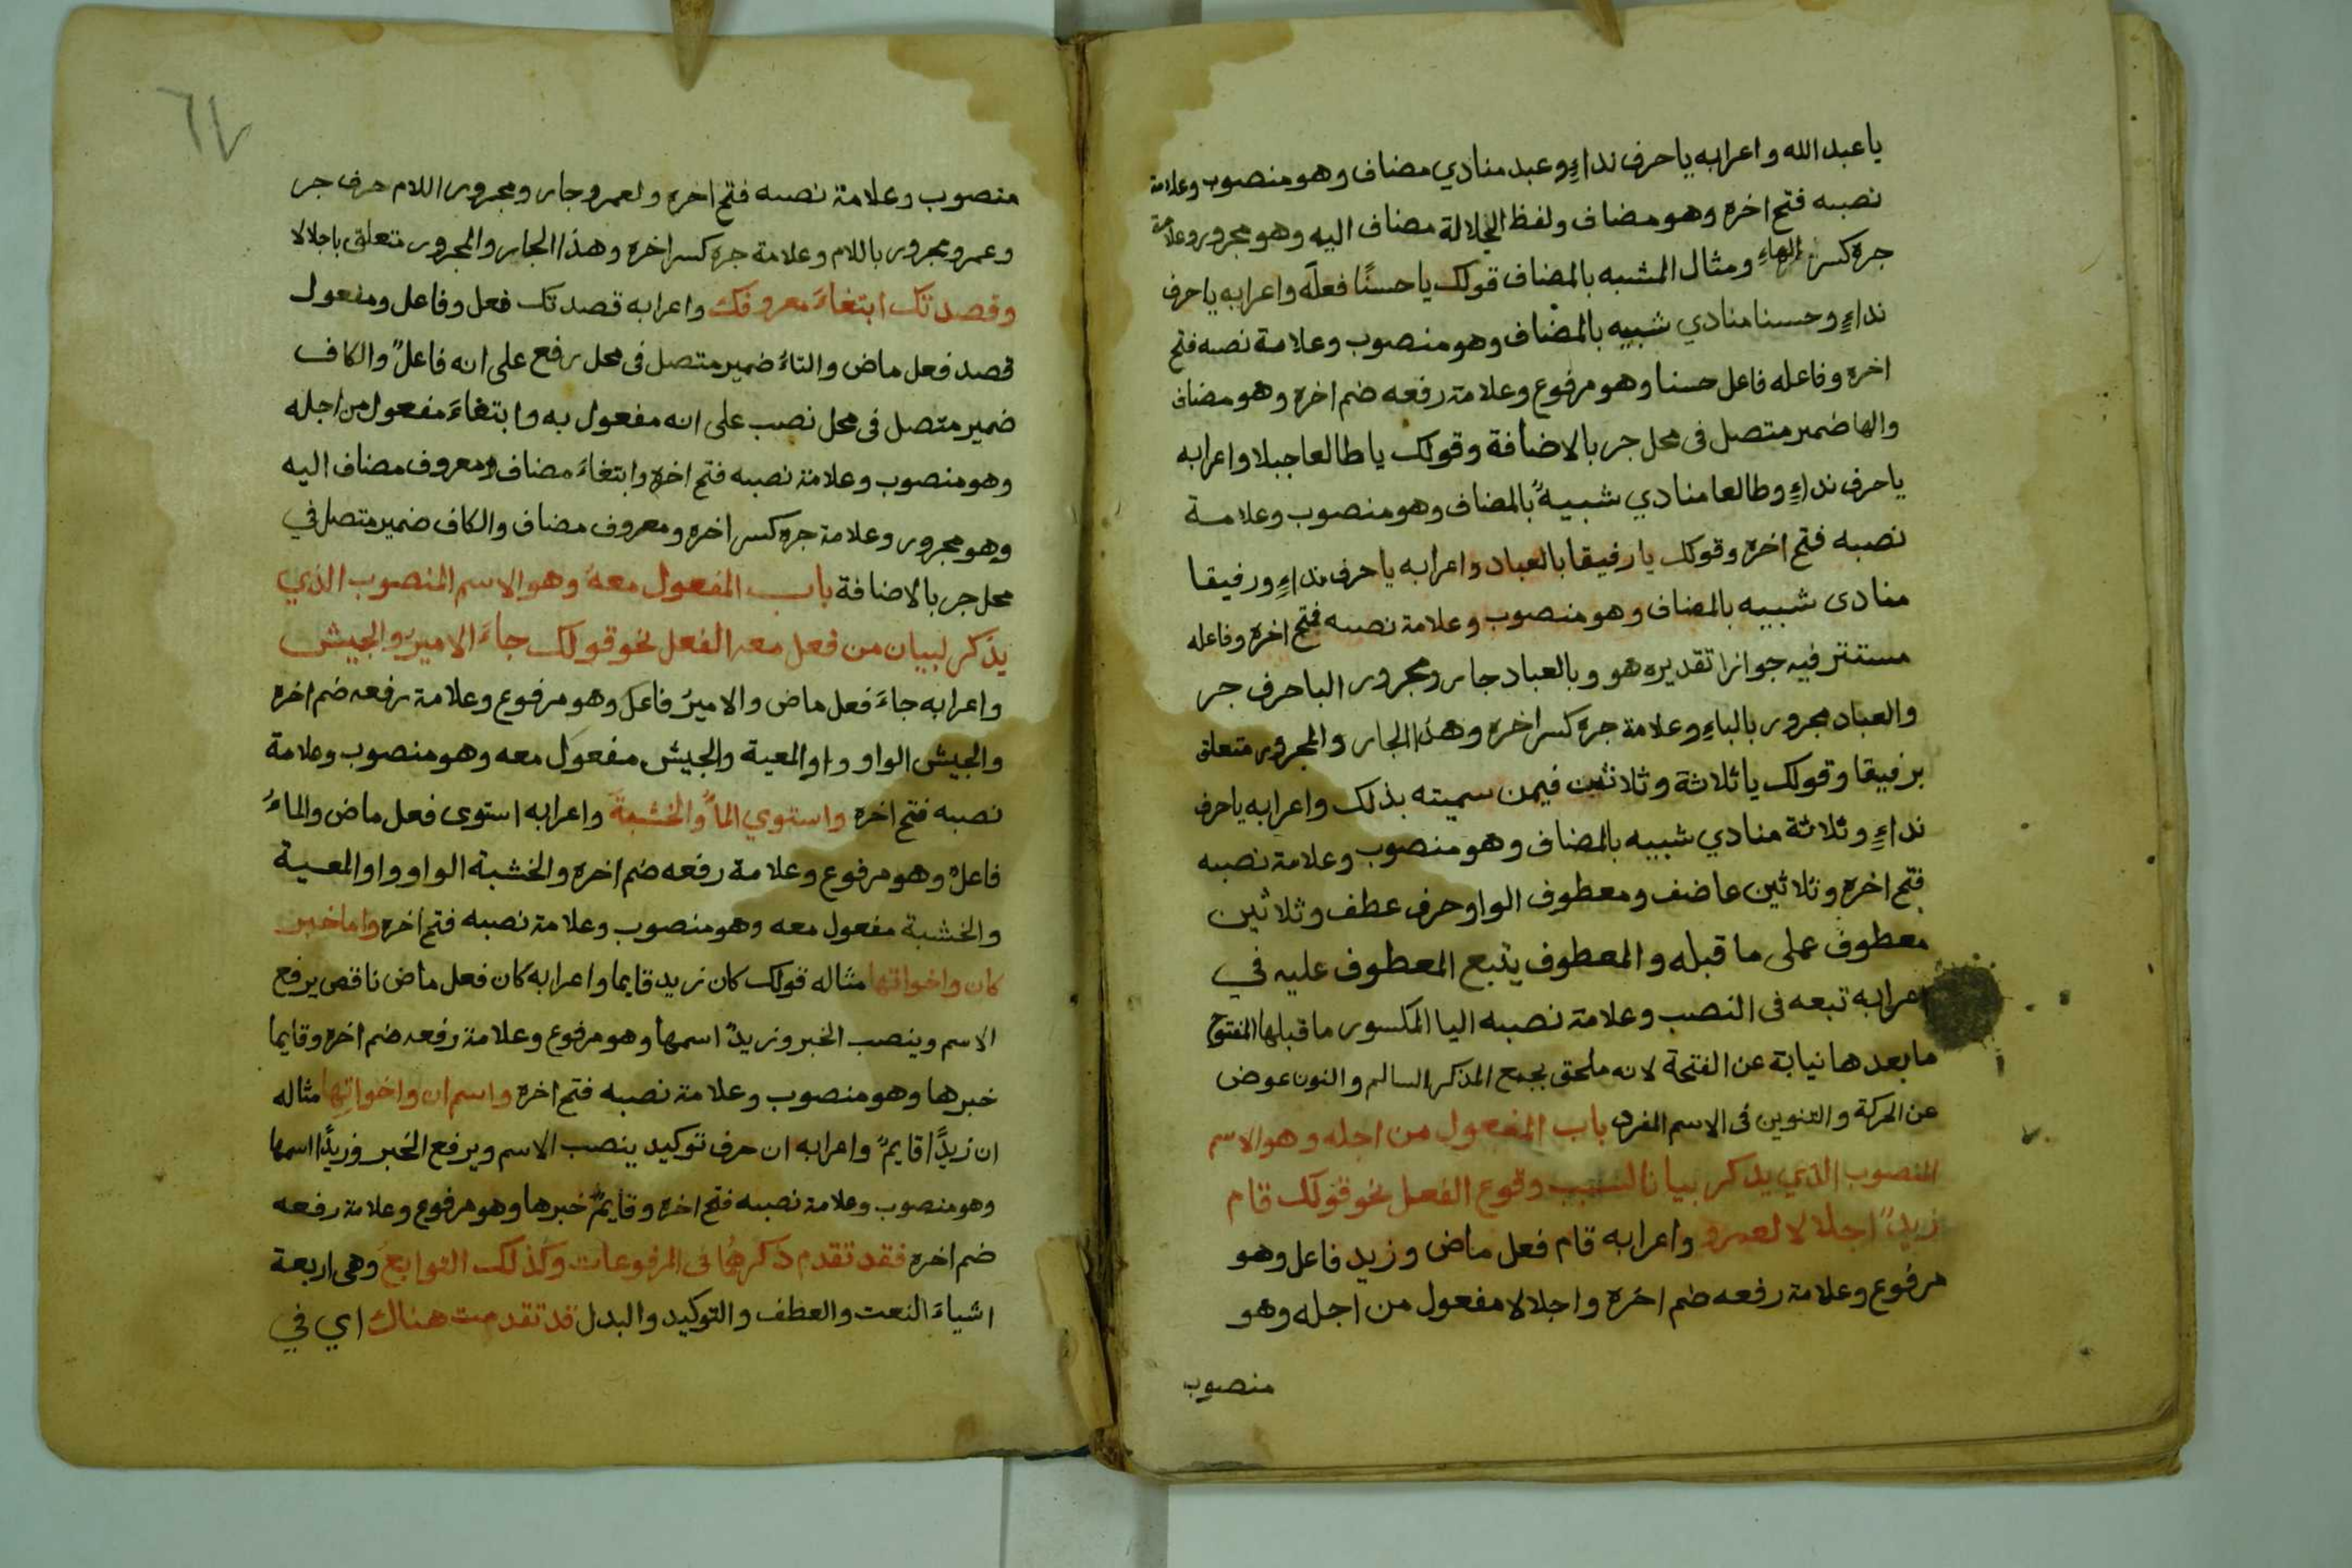 يا عبد الله واعرابه يا حرف نداءٍ وعبد منادي مضاف وهو منصوب وعلامة
نصبه فتح اخره وهو مضاف ولفظ الجلالة مضاف اليه وهو مجرور وعلامة
جره كسر الهاءِ ومثال المشبه بالمضاف قولك يا حسنًا فعله واعرابه يا حرف
نداءٍ وحسنا منادي شبيه بالمضاف وهو منصوب وعلامة نصبه فتح
اخره وفاعله فاعل حسنا وهو مرفوع وعلامة رفعه ضم اخره وهو مضاف
والها ضمير متصل فى محل جر بالاضافة وقولك يا طالعا جبلا واعرابه
يا حرف نداءٍ وطالعا منادي شبيهٌ بالمضاف وهو منصوب وعلامة
نصبه فتح اخره وقولك يا رفيقا بالعباد واعرابه يا حرف نداءٍ ورفيقا
منادى شبيه بالمضاف وهو منصوب وعلامة نصبه فتح اخره وفاعله
مستتر فيه جوازا تقديره هو وبالعباد جار ومجرور البا حرف جر
والعباد مجرور بالباءِ وعلامة جره كسر اخره وهذا الجار والمجرور متعلق
برفيقا وقولك يا ثلاثة وثلاثين فيمن سميته بذلك واعرابه يا حرف
نداءٍ وثلاثة منادي شبيه بالمضاف وهو منصوب وعلامة نصبه
فتح اخره وثلاثين عاضف ومعطوف الواو حرف عطف وثلاثين
معطوف على ما قبله والمعطوف يتبع المعطوف عليه في
اعرابه تبعه فى النصب وعلامة نصبه اليا المكسور ما قبلها المفتوح
ما بعدها نيابة عن الفتحة لانه ملحق بجمع المذكر السالم والنون عوض
عن الحركة والتنوين فى الاسم المفرد باب المفعول من اجله وهو الاسم
المنصوب الذي يذكر بيانا لسبب وقوع الفعل نحو قولك قام
زيدٌ اجلالا لعمرو واعرابه قام فعل ماض وزيد فاعل وهو
مرفوع وعلامة رفعه ضم اخره واجلالا مفعول من اجله وهو
منصوب
٦٧
منصوب وعلامة نصبه فتح اخره ولعمرو جار ومجرور اللام حرف جر
وعمرو مجرور باللام وعلامة جره كسر اخره وهذا الجار والمجرور متعلق باجلالا
وقصدتك ابتغاءَ معروفك واعرابه قصدتك فعل وفاعل ومفعول
قصد فعل ماض والتاءُ ضمير متصل فى محل رفع على انه فاعلٌ والكاف
ضمير متصل فى محل نصب على انه مفعول به وابتغاءَ مفعول من اجله
وهو منصوب وعلامة نصبه فتح اخره وابتغاءَ مضاف ومعروف مضاف اليه
وهو مجرور وعلامة جره كسر اخره ومعروف مضاف والكاف ضمير متصل في
محل جر بالاضافة باب المفعول معه وهو الاسم المنصوب الذي
يذكر لبيان من فعل معه الفعل نحو قولك جاءَ الاميرُ والجيش
واعرابه جاءَ فعل ماض والاميرُ فاعل وهو مرفوع وعلامة رفعه ضم اخره
والجيش الواو واو المعية والجيش مفعول معه وهو منصوب وعلامة
نصبه فتح اخره واستوي الماءُ والخشبةَ واعرابه استوى فعل ماض والماءُ
فاعلٌ وهو مرفوع وعلامة رفعه ضم اخره والخشبة الواو واو المعية
والخشبة مفعول معه وهو منصوب وعلامة نصبه فتح اخره واما خبر
كان واخواتها مثاله قولك كان زيد قايما واعرابه كان فعل ماض ناقص يرفع
الاسم وينصب الخبر وزيدٌ اسمها وهو مرفوع وعلامة رفعه ضم اخره وقايما
خبرها وهو منصوب وعلامة نصبه فتح اخره واسم ان واخواتها مثاله
ان زيدًا قايمٌ واعرابه ان حرف توكيد ينصب الاسم ويرفع الخبر وزيدًا اسمها
وهو منصوب وعلامة نصبه فتح اخره وقايمٌ خبرها وهو مرفوع وعلامة رفعه
ضم اخره فقد تقدم ذكرهُما فى المرفوعات وكذلك التوابع وهى اربعة
اشياءَ النعت والعطف والتوكيد والبدل قد تقدمت هناك اي في